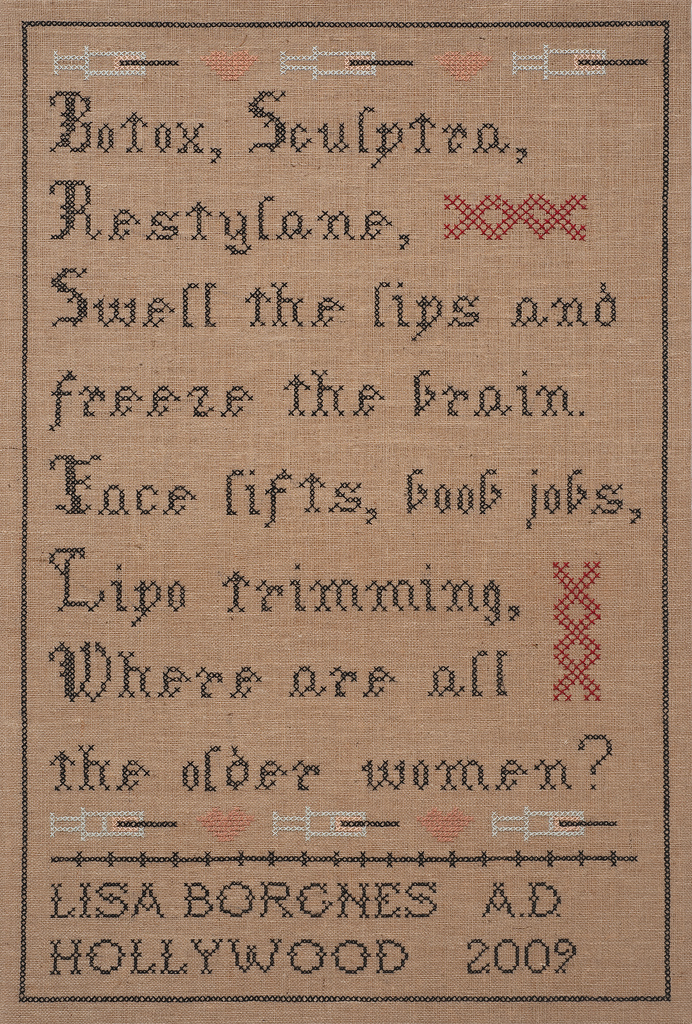 Botox, Sculptra,
Restylane, XXX
Swell the lips and
freeze the brain.
Face lifts, boob jobs,
Lipo trimming,
Where are all
the older women?
LISA BORGNES A.D
HOLLYWOOD 2009